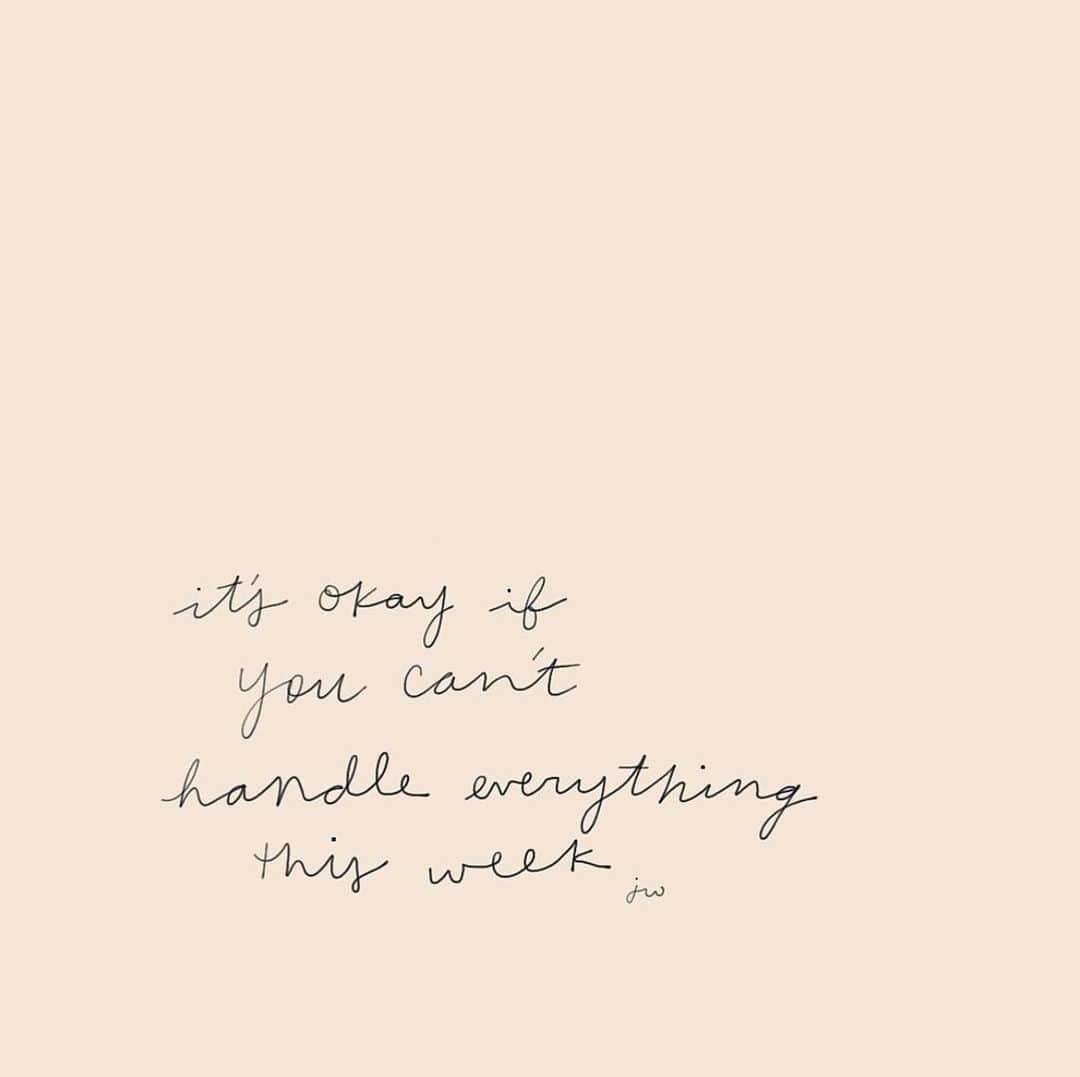 it's okay if
you can't
handle everything
this week
jw